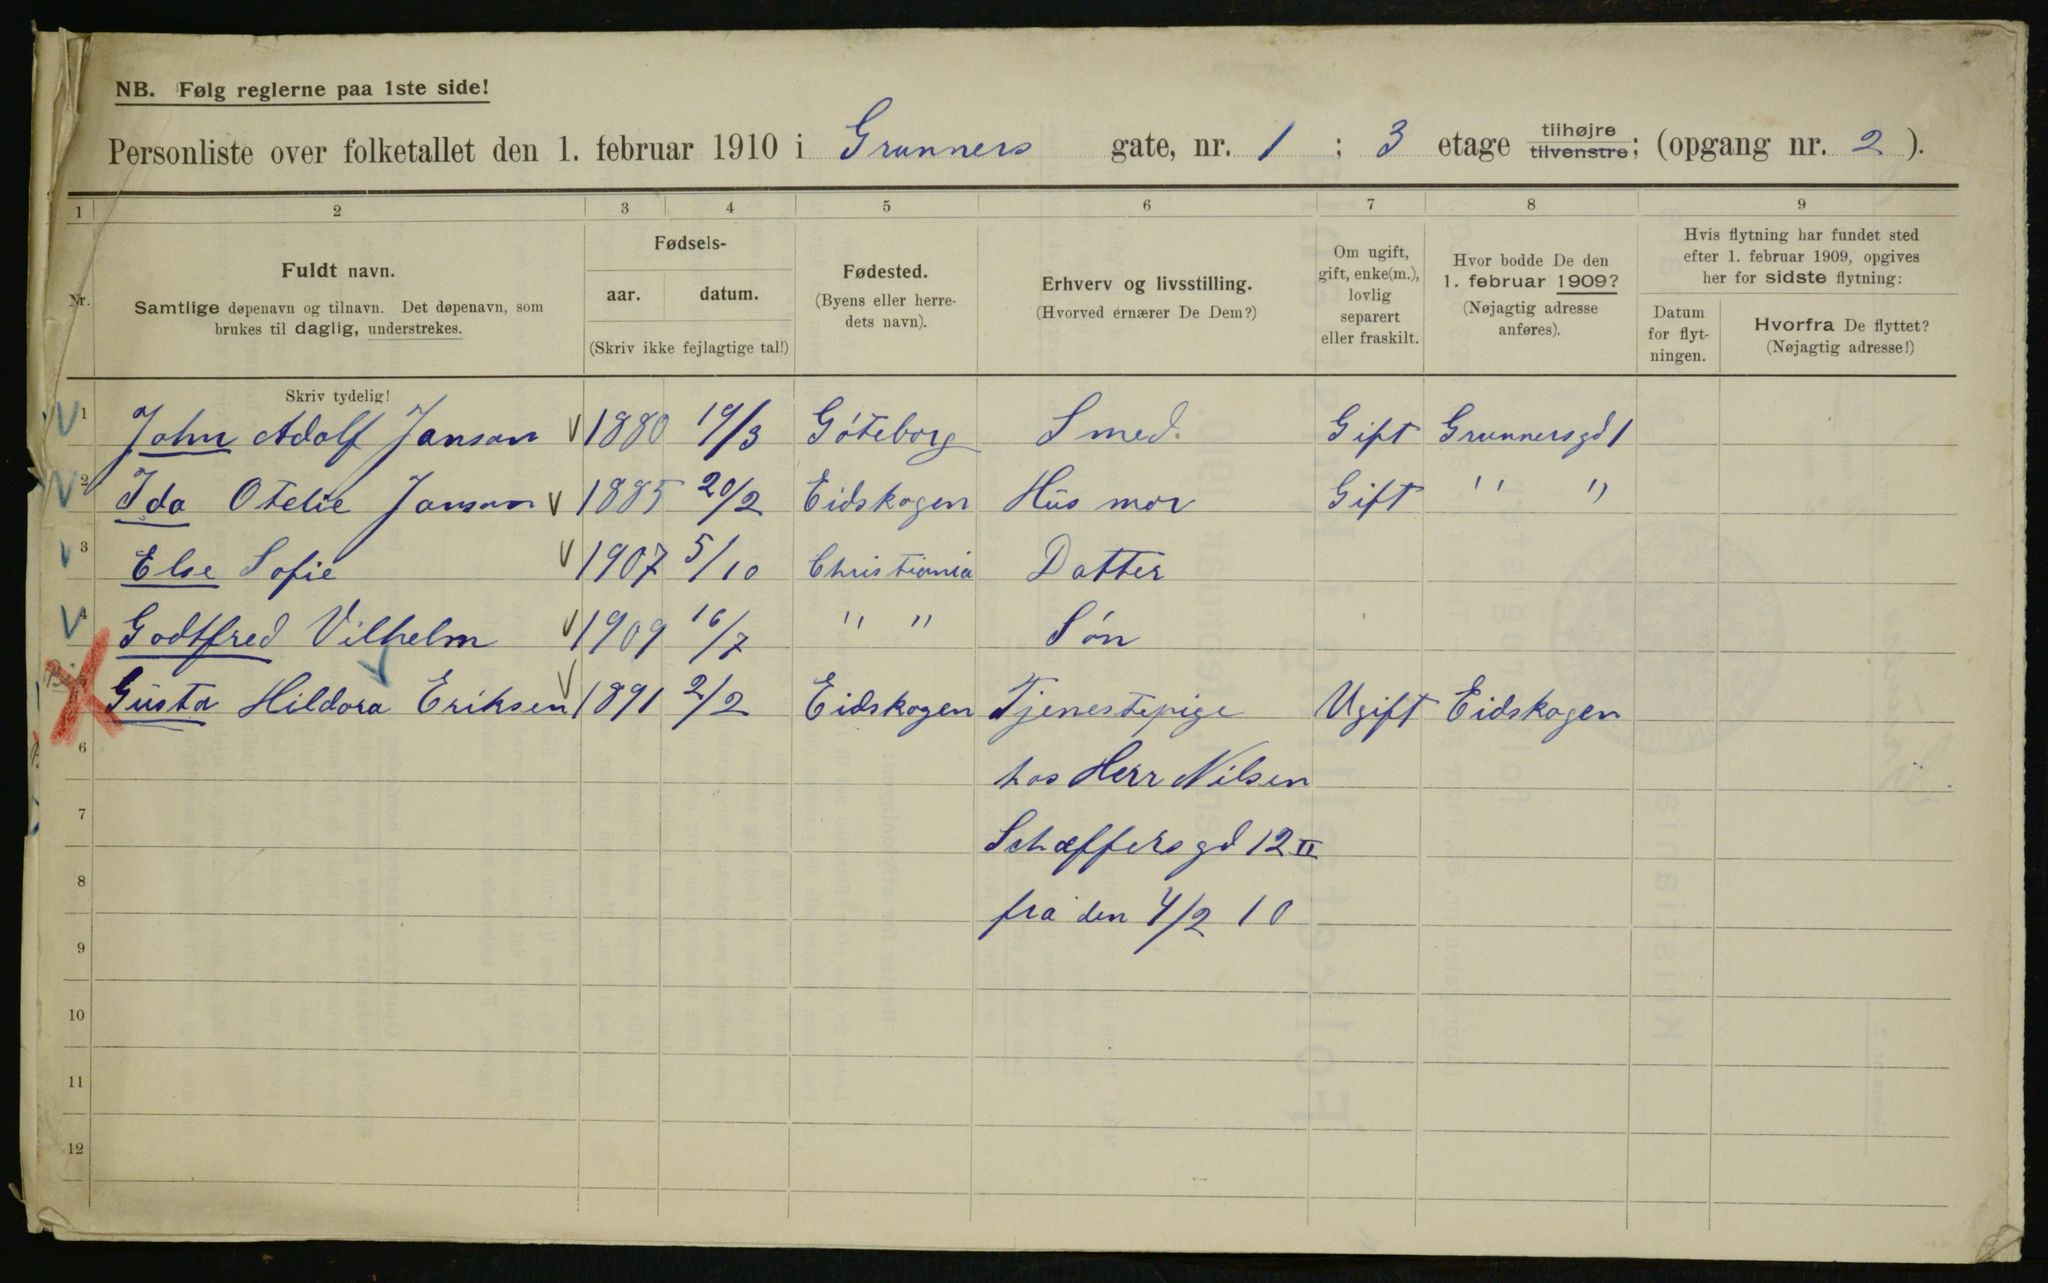 NB. Følg reglerne paa 1ste side!
Personliste over folketallet den 1. februar 1910 i Grunners gate, nr. 1 ; 3 etage tilhøjre tilvenstre; (opgang nr. 2 ).
1 2 3 4 5 6 7 8 9
Nr.
Fuldt navn.
Samtlige døpenavn og tilnavn. Det døpenavn, som
brukes til daglig, understrekes.
Fødsels-
aar. datum.
(Skriv ikke fejlagtige tal!)
Fødested.
(Byens eller herre-
dets navn).
Erhverv og livsstilling.
(Hvorved ernærer De Dem?)
Om ugift,
gift, enke(m.),
lovlig
separert
eller fraskilt.
Hvor bodde De den
1. februar 1909?
(Nøjagtig adresse
anføres).
Hvis flytning har fundet sted
efter 1. februar 1909, opgives
her for sidste flytning:
Datum
for flyt-
ningen.
Hvorfra De flyttet?
(Nøjagtig adresse!)
Skriv tydelig!
1 John Adolf Janson 1880 19/3 Göteborg Smed. Gift Grunnersgd 1
2 Ida Otelie Janson 1885 20/2 Eidskogen Hus mor Gift " "
3 Else Sofie 1907 5/10 Christiania Datter
4 Godtfred Vilhelm 1909 16/7 " " Søn
Gusta Hildora Eriksen 1891 2/2 Eidskogen Tjenestepige Ugift Eidskogen
6 hos Herr Nilsen
7 Schæffersgd 12 II
8 fra den 4/2 10
9
10
11
12